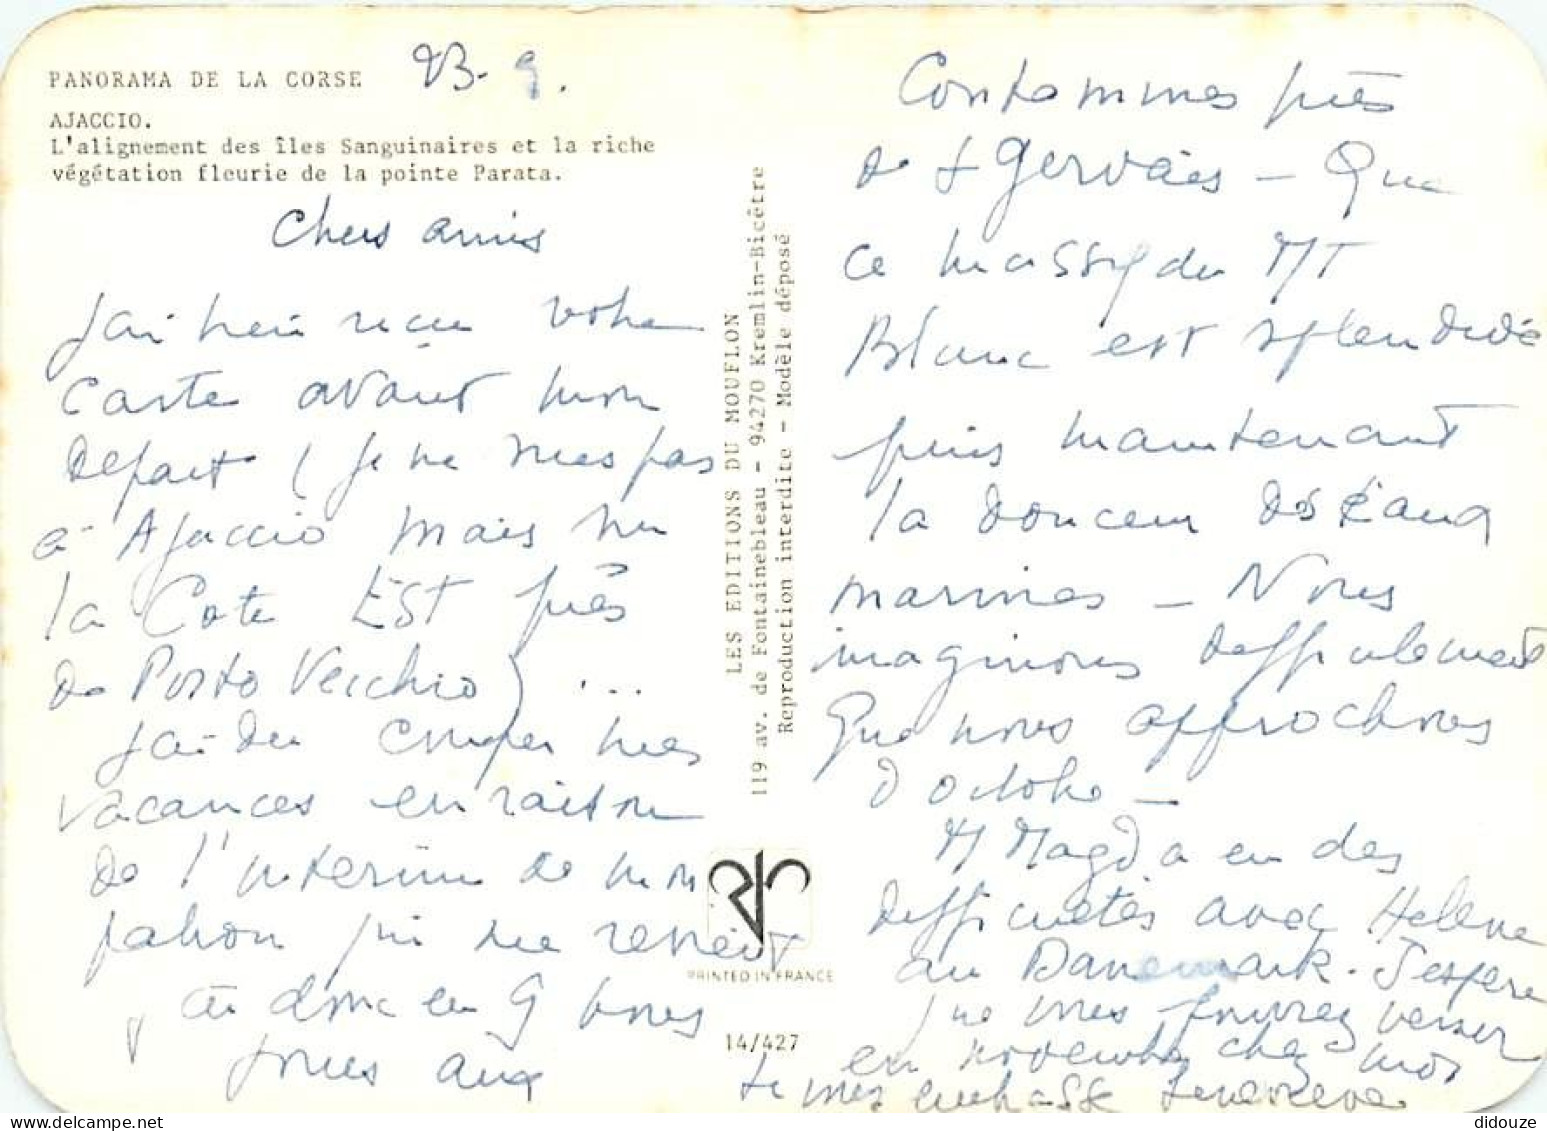 PANORAMA DE LA CORSE
23-9.
AJACCIO.
L'alignement des îles Sanguinaires et la riche
végétation fleurie de la pointe Parata.
Chers amis
J'ai bien reçu votre
carte avant mon
départ (je ne suis pas
à Ajaccio mais sur
la Cote EST près
de Porto Vecchio) ...
J'ai du couper mes
vacances en raison
de l'interim de mon
patron qui me revient
ai donc eu 9 bons
jours aux
LES EDITIONS DU MOUFLON
119 av. de Fontainebleau - 94270 Kremlin-Bicêtre
Reproduction interdite - Modèle déposé
PRINTED IN FRANCE
14/427
Contammines près
de St Gervais - Que
ce massif du MT
Blanc est splendide
puis maintenant
la douceur des eaux
marines - Nous
imaginons difficilement
que nous approchons
d'octobre -
M Magda eu des
difficultés avec Helene
au Danemark. J'espère
que vous pourrez venir
en novembre chez moi
Je vous embrasse Genevieve
didouze